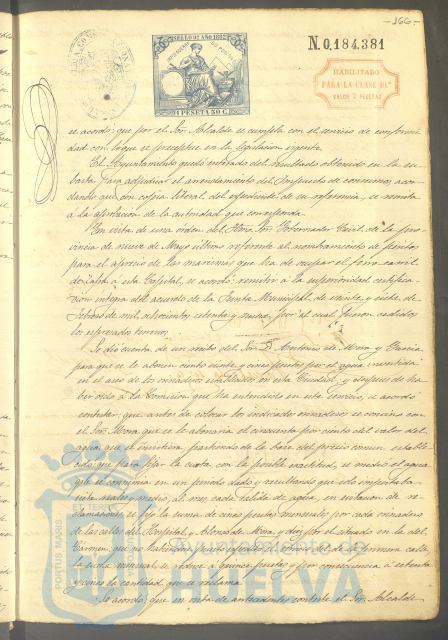 -166-
SELLO 9º AÑO 1882
1 PESETA 50 C.
N.0,184,381
HABILITADO
PARA LA CLASE 10.ª
VALOR 2 PESETAS
se acordó: que por el Sor. Alcalde se cumpla con el servicio de conformi
dad con lo que se preceptua en la legislacion vigente.
El Ayuntamiento quedó enterado del resultado obtenido en la su
basta para adjudicar el arrendamiento del Impuesto de consumos, acor
dando que con copia literal del expediente de su referencia, se remita
á la aprobacion de la autoridad que corresponda.
En vista de una orden del Ilmo. Sor. Gobernador Civil de la pro
vincia de nueve de Mayo último referente al nombramiento de peritos
para el aprecio de las marismas que ha de ocupar el ferro-carril
de Zafra á esta Capital, se acordó: remitir á la superioridad certifica
cion íntegra del acuerdo de la Junta Municipal de veinte y siete de
Febrero de mil ochocientos setenta y nueve, por el cual fueron cedidos
los expresados terrenos.
Se dió cuenta de un escrito del Sor. D. Antonio de Mora y Garcia
para que se le abonen ciento veinte y cinco pesetas por el agua invertida
en el aseo de los mingitorios establecidos en esta Ciudad, y despues de ha
ber oido á la Comision que ha entendido en este servicio, se acordó
contestar: que antes de colocar los indicados mingitorios se convino con
el Sor. Mora que se le abonaria el cincuenta por ciento del valor del
agua que se invirtiera, partiendo de la base del precio comun estable
cido; que para fijar la cuota, con la posible exactitud, se midió el agua
que se consumia en un periodo dado y resultando que solo importaba
veinte reales y medio, al mes, cada salida de agua, en evitacion de re
clamaciones se fijó la suma de cinco pesetas mensuales por cada mingitorio
de las calles del Hospital y Alonso de Mora, y dos por el situado en la del
Carmen, que no habiendo tenido efecto el último de la primera calle
la cuota mensual se reduce á quince pesetas y por consecuencia á setenta
y cinco la cantidad que se reclama.
Se acordó: que en vista de antecedentes conteste el Sor. Alcalde
PORTUS MARIS
ET TERRAE
Ayuntamiento de
HUELVA